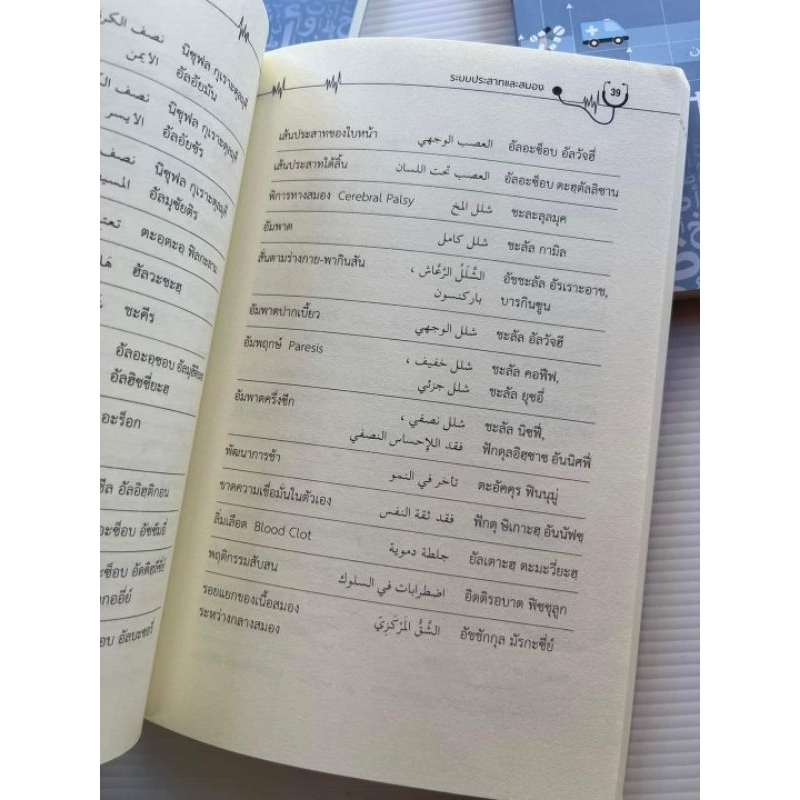 نصف الكر นิซฺฟุล กุเราะตุลฺญุ
الايمن อัลอัยมัน
نصف الك นิซฺฟุล กุเราะตุลฺญุ
الايسر อัลอัยซัร
نصف นิซฺฟุล กุเราะตุลฺญุ
อัลมุซัยติร
تعت ตะอฺตะอฺ ฟิลกะลาม
ฮัลวะซะฮฺ
ชะคีร
อัลฮิซซี่ยะฮฺ
อะร็อก
ระบบประสาทและสมอง 39
เส้นประสาทของใบหน้า العصب الوجهي อัลอะซ็อบ อัลวัจฮี่
เส้นประสาทใต้ลิ้น العصب تحت اللسان อัลอะซ็อบ ตะฮฺตัลลิซาน
พิการทางสมอง Cerebral Palsy شلل المخ ชะละลุลมุค
อัมพาต شلل كامل ชะลัล กามิล
สั่นตามร่างกาย-พากินสัน الشَّلَلُ الرَّعَّاش ، อัชชะลัล อัรเราะอาช,
باركنسون บารกินซูน
อัมพาตปากเบี้ยว شلل الوجهي ชะลัล อัลวัจฮี
อัมพฤกษ์ Paresis شلل خفيف ، ชะลัล คอฟีฟ,
شلل جزئي ชะลัล ยุซอี่
อัมพาตครึ่งซีก شلل نصفي ، ชะลัล นิซฟี่,
فقد اللإحساس النصفي ฟักดุลอิฮฺซาซ อันนิศฟี่
พัฒนาการช้า تاخر في النمو ตะอัคคุร ฟินนุมู่
ขาดความเชื่อมั่นในตัวเอง فقد ثقة النفس ฟักดุ ษิเกาะฮฺ อันนัฟซฺ
ลิ่มเลือด Blood Clot جلطة دموية ยัลเตาะฮฺ ดะมะวี่ยะฮฺ
พฤติกรรมสับสน اضطرابات في السلوك อิดติรอบาต ฟิซซุลูก
รอยแยกของเนื้อสมอง الشُّقُّ المَرْكَزِيّ อัชชักกุล มัรกะซี่ย์
ระหว่างกลางสมอง